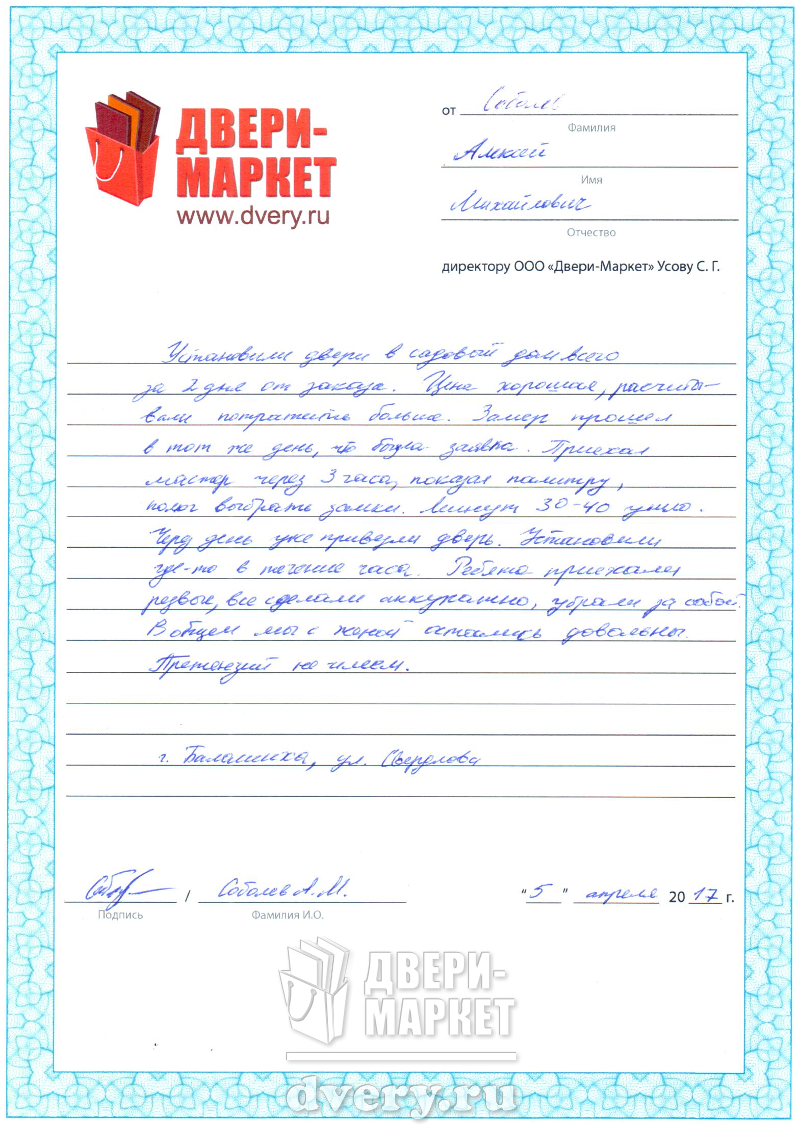 ДВЕРИ-
МАРКЕТ
www.dvery.ru
от
Фамилия
Алексей
Имя
Михайлович
Отчество
директору ООО «Двери-Маркет» Усову С. Г.
Установили двери в садовый дом всего
за 2 дня от заказа. Цена хорошая, расчиты-
вали потратить больше. Замер прошел
в тот же день, что была заявка. Приехал
мастер через 3 часа, показал палитру,
помог выбрать замки. Минут 30-40 ушло.
Через день уже привезли дверь. Установили
где-то в течение часа. Ребята приехали
резвые, все сделали аккуратно, убрали за собой.
В общем мы с женой остались довольны.
Претензий не имеем.
г. Балашиха, ул. Свердлова
/ Соболев А. М. "5" апреля 2017 г.
Подпись Фамилия И.О.
ДВЕРИ-
МАРКЕТ
dvery.ru